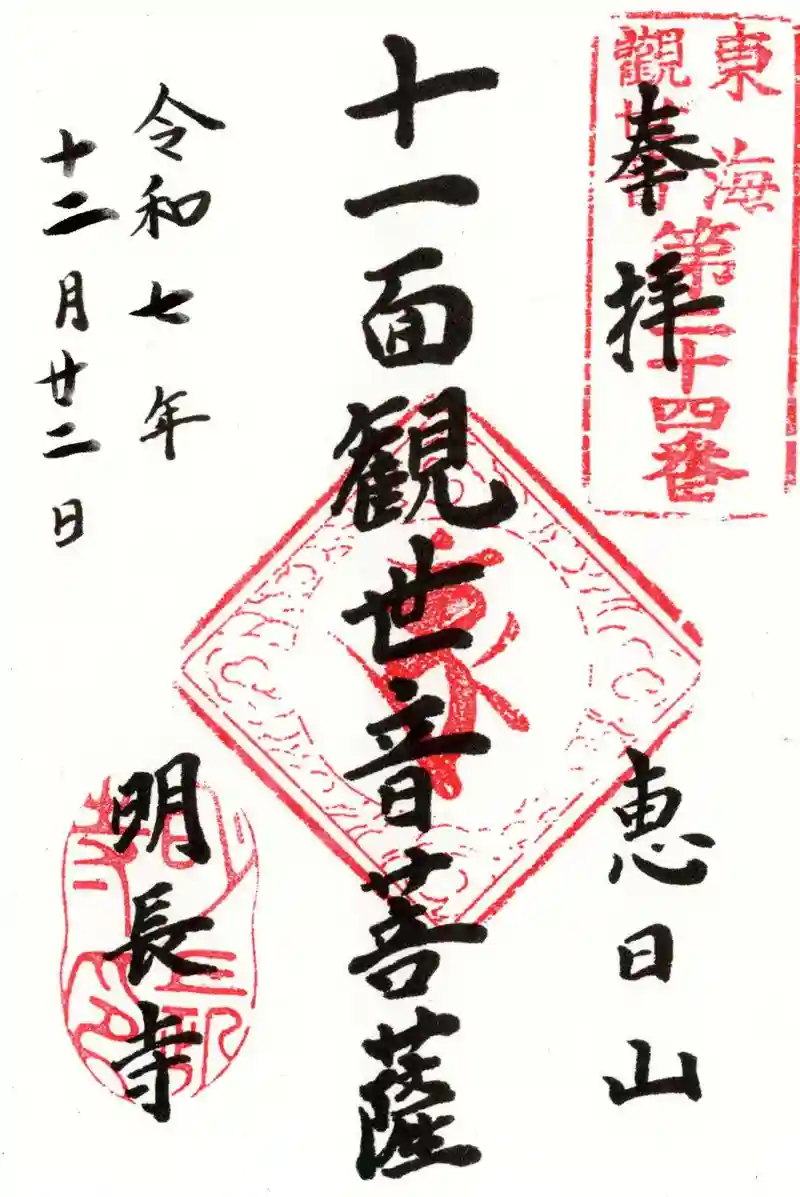 奉拝
東海
觀世音
第二十四番
恵日山
十一面観世音菩薩
令和七年
十二月廿二日
明長寺